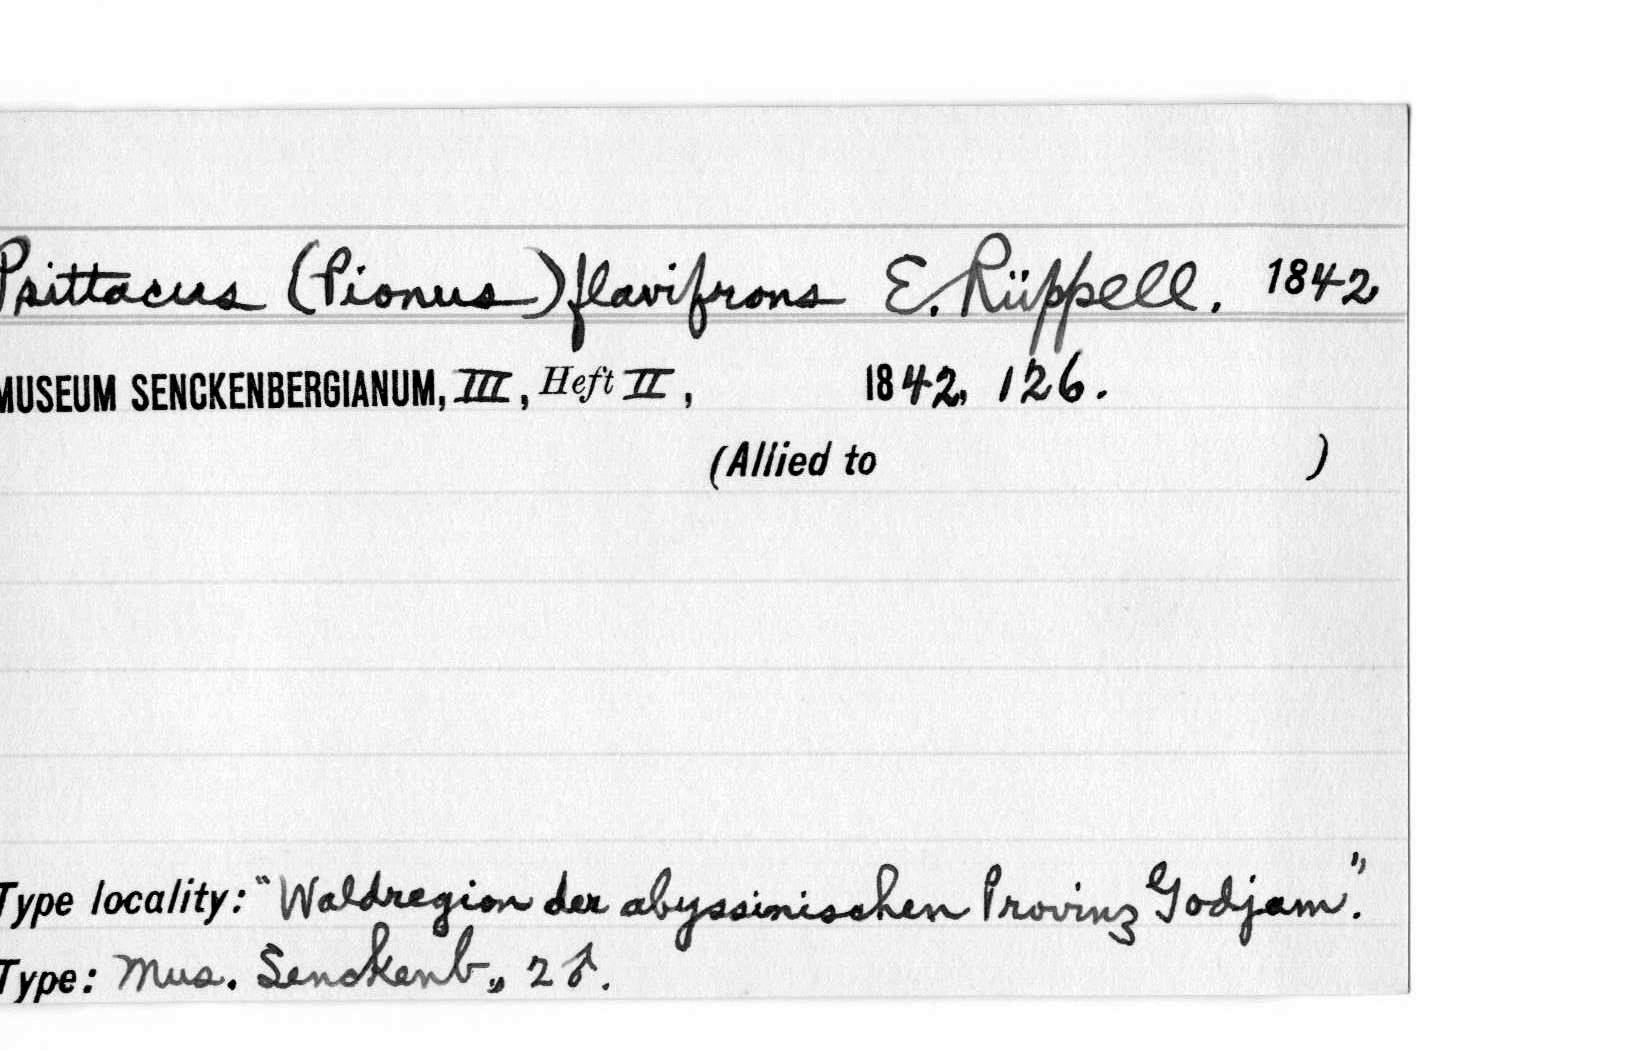 Psittacus (Pionus) flavifrons E. Rüppell. 1842
MUSEUM SENCKENBERGIANUM, III, Heft II, 1842, 126.
(Allied to )
Type locality: "Waldregion der abyssinischen Provinz Godjam".
Type: Mus. Senckenb., 2 ♂.